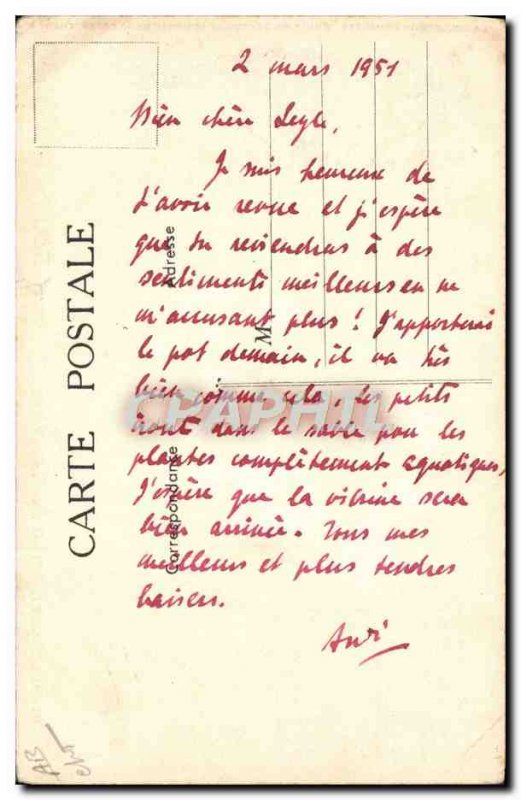 2 mars 1951
Bien chère Leyle,
Je suis heureuse de
t'avoir revue et j'espère
que tu reviendras à des
sentiments meilleurs en ne
m'accusant plus ! J'apporterai
le pot demain, il va très
bien comme cela. Les petits
iront dans le sable pour les
plantes complètement aquatiques,
J'espère que la vitrine sera
bien arrivée. Tous mes
meilleurs et plus tendres
baisers.
CARTE POSTALE
Correspondance
Adresse
M
CPAPHIL